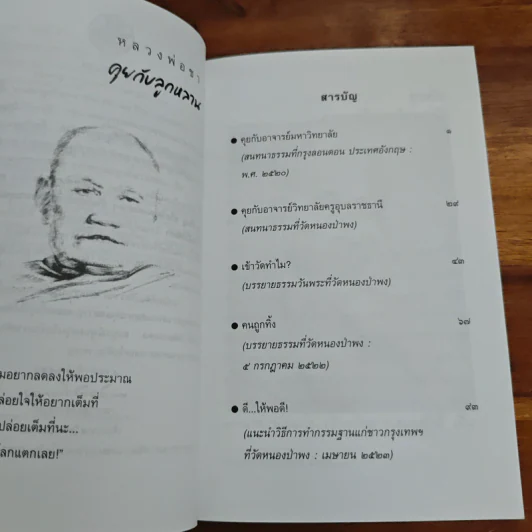 หลวงพ่อชา
คุยกับลูกหลาน
อยากลดลงให้พอประมาณ
ล่อยใจให้อยากเต็มที่
ปล่อยเต็มที่นะ...
โลกแตกเลย!"
สารบัญ
● คุยกับอาจารย์มหาวิทยาลัย ๑
(สนทนาธรรมที่กรุงลอนดอน ประเทศอังกฤษ :
พ.ศ. ๒๕๒๐)
● คุยกับอาจารย์วิทยาลัยครูอุบลราชธานี ๒๙
(สนทนาธรรมที่วัดหนองป่าพง)
● เข้าวัดทำไม? ๔๓
(บรรยายธรรมวันพระที่วัดหนองป่าพง)
● คนถูกทิ้ง ๖๗
(บรรยายธรรมที่วัดหนองป่าพง :
๕ กรกฎาคม ๒๕๒๒)
● ดี...ให้พอดี! ๙๓
(แนะนำวิธีการทำกรรมฐานแก่ชาวกรุงเทพฯ
ที่วัดหนองป่าพง : เมษายน ๒๕๒๓)